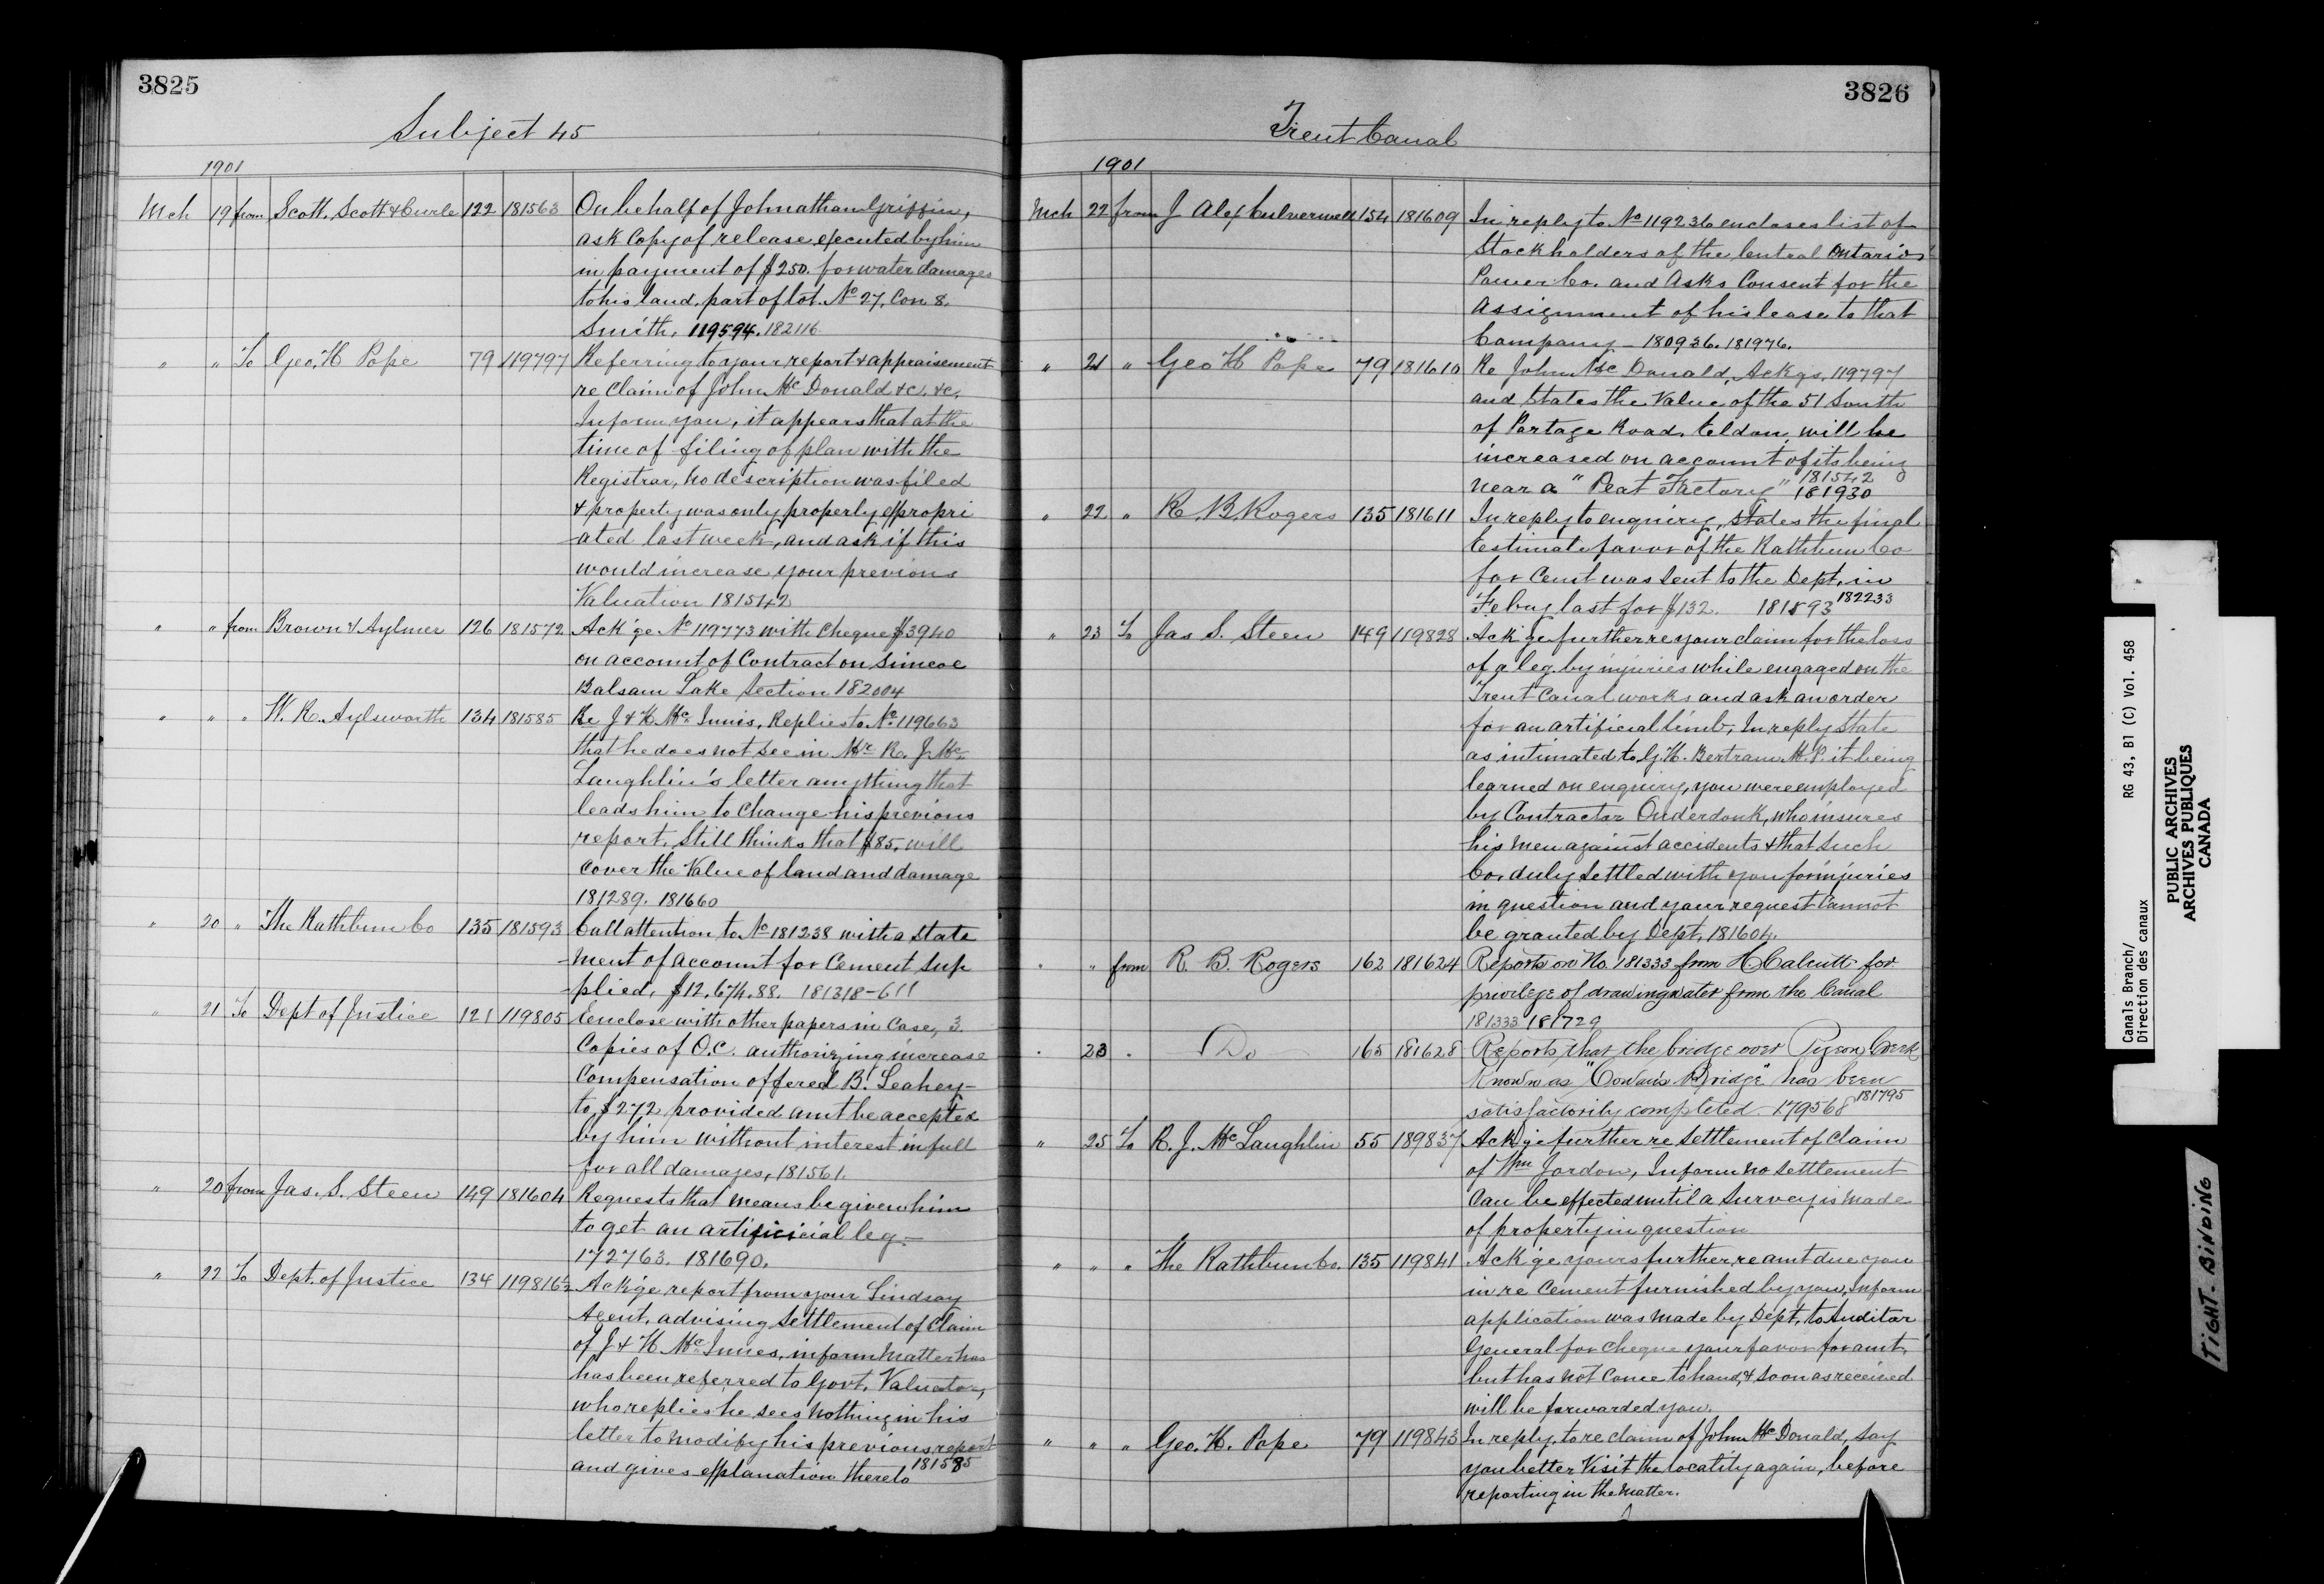 3825
Subject 45
1901
Mch 19 from Scott, Scott & Curle 122 181563 On behalf of Johnathan Griffin,
ask Copy of release executed by him
in payment of $250. for water damages
to his land, part of lot No 27, Con 8.
Smith, 119594. 182116
" " To Geo. H Pope 79 119797 Referring to your report & appraisement
re Claim of John McDonald &c. &c.
Inform you, it appears that at the
time of filing of plan with the
Registrar, no description was filed
& property was only properly expropri
-ated last week, and ask if this
would increase your previous
Valuation 181542
" " from Brown & Aylmer 126 181572 Ack'ge No 119773 with Cheque $3940
on account of Contract on Simcoe
Balsam Lake Section 182004
" " " W. R. Aylsworth 134 181585 Re J & H McInnis, Replies to No 119663
that he does not see in Mr R. J. Mc
Laughlin's letter anything that
leads him to change his previous
report. Still thinks that $85. will
cover the Value of land and damage
181289. 181660
" 20 " The Rathbun Co 135 181593 Call attention to No 181238 with a State
-ment of account for Cement Sup
-plied, $12,674.88. 181318-611
" 21 To Dept of Justice 121 119805 Enclose with other papers in Case, 3
Copies of O.C. authorizing increase
Compensation offered B. Leahey-
to $272 provided amt be accepted
by him without interest in full
for all damages, 181561.
" 20 from Jas. S. Steen 149 181604 Requests that means be given him
to get an artificicial leg.-
172763. 181690.
" 22 To Dept. of Justice 134 119816½ Ack'ge report from your Lindsay
Agent, advising Settlement of Claim
of J & H McInnes, inform Matter has
has been referred to Govt. Valuator,
who replies he sees nothing in his
letter to modify his previous report
and gives explanation thereto 181585
3826
Trent Canal
1901
Mch 22 from J Alex Culverwell 154 181609 In reply to No 119236 encloses list of
Stockholders of the Central Ontario
Power Co. and Asks Consent for the
Assignment of his lease to that
Company - 180936. 181976.
" 21 " Geo H Pope 79 181610 Re John McDonald, Ackgs, 119797
and States the Value of the 51 South
of Portage Road, Eldon, will be
increased on account of its being
near a "Peat Factory" 181542 181930
" 22 " R. B. Rogers 135 181611 In reply to enquiry, States the final
Estimate favor of the Rathbun Co
for Cemt was Sent to the Dept. in
Feby last for $132. 181593 182233
" 23 To Jas S. Steen 149 119828 Ack'ge further re your claim for the loss
of a leg by injuries while engaged on the
Trent Canal works and ask an order
for an artificial limb, In reply State
as intimated to G. H. Bertram M.P. it being
learned on enquiry, you were employed
by Contractor Onderdonk, who insures
his men against accidents & that Such
Co. duly settled with you for injuries
in question and your request Cannot
be granted by Dept. 181604.
" " from R. B. Rogers 162 181624 Reports on No. 181333 from H. Calcutt for
privilege of drawing water from the Canal
181333 181729
" 23 " Do 165 181628 Reports that the bridge over Pigeon Creek
Known as "Cowan's Bridge" has been
satisfactorily completed - 179568 181795
" 25 To R. J. McLaughlin 55 189837 Ack'ge further re Settlement of Claim
of Wm Jordon, Inform no Settlement
Can be effected until a Survey is made
of property in question
" " " The Rathbun Co. 135 119841 Ack'ge yours further, re amt due you
in re Cement furnished by you, Inform
application was made by Dept. to Auditor
General for Cheque your favor for amt,
but has not Come to hand, & soon as received
will be forwarded you.
" " " Geo. H. Pope 79 119843 In reply to re claim of John McDonald, say
you better Visit the locatity again, before
reporting in the Matter.
Canals Branch/ RG 43, B1 (C) Vol. 458
Direction des canaux
PUBLIC ARCHIVES
ARCHIVES PUBLIQUES
CANADA
TIGHT-BINDING